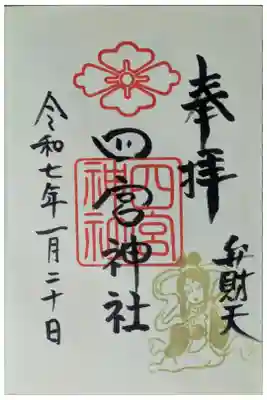 奉拝
四宮神社
四宮
神社
弁財天
令和七年一月二十日